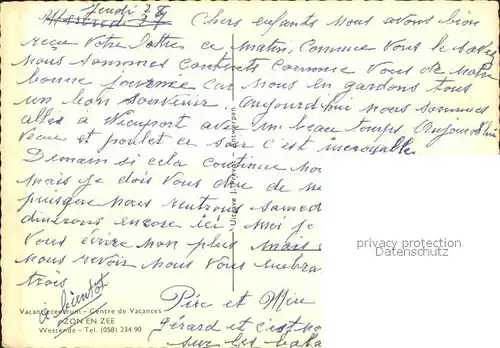 Jeudi 2
Chers enfants nous avons bien
reçu votre lettre ce matin, comme vous le savez
nous sommes contents comme vous de notre
bonne journée car nous en gardons tous
un bon souvenir. Aujourd'hui nous sommes
allés a Nieuport avec un beau temps Aujourd'hui
veau et poulet ce soir c'est incroyable
Demain si cela continue
mais je dois vous dire de
puisque nous rentrons samedi
dinerons encore ici
vous écrire non plus mais
nous revoir nous vous embra
trois
à bientôt
Père et Mère
Gérard et
sur les
Vacantiecentrum - Centre de Vacances
ZON EN ZEE
Westende - Tel. (058) 234.90
Uitgave J. - Antwerpen
privacy protection
by oldthing.de